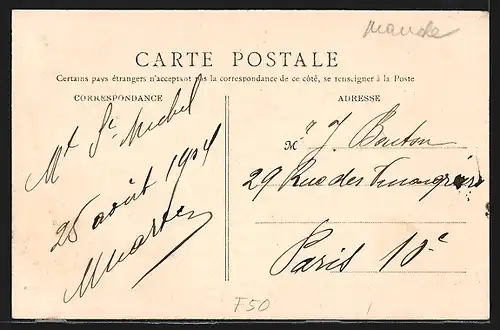 Manche
CARTE POSTALE
Certains pays étrangers n'acceptant pas la correspondance de ce côté, se renseigner à la Poste
CORRESPONDANCE
Mt St Michel
25 août 1904
ADRESSE
M" J Bouton
29 Rue des Vinaigriers
Paris 10e
F50